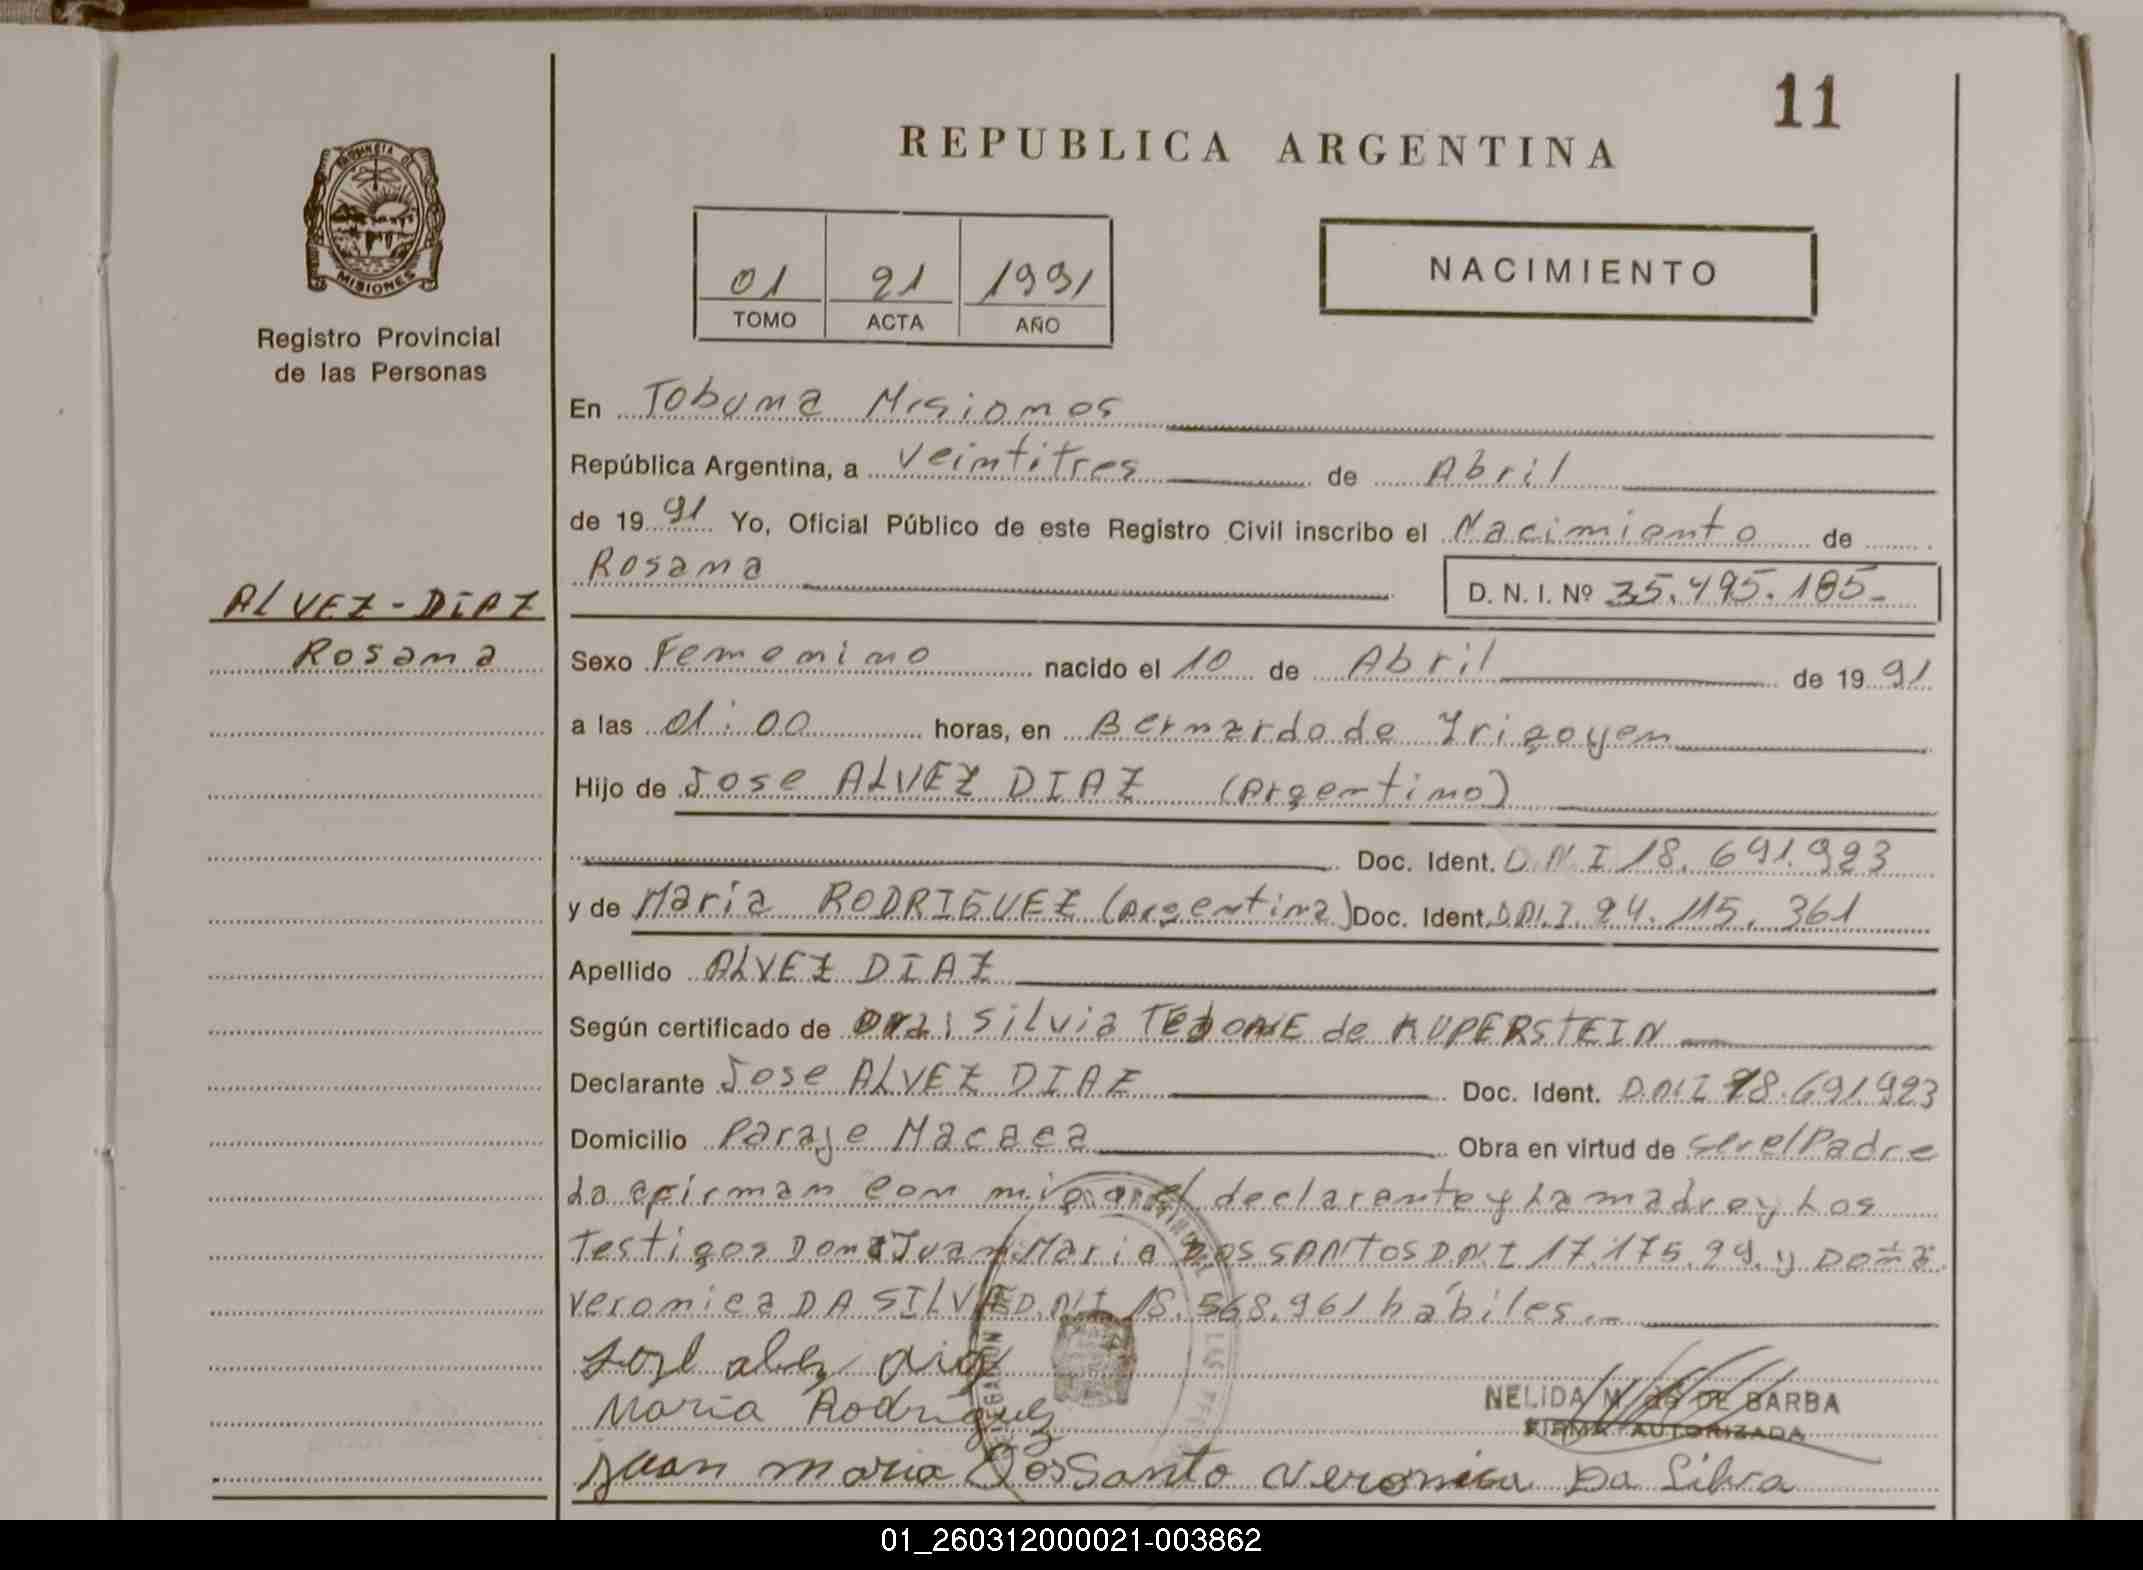 11
REPUBLICA ARGENTINA
PROVINCIA DE
MISIONES
Registro Provincial
de las Personas
01 21 1991
TOMO ACTA AÑO
NACIMIENTO
En Tobuna Misiones
República Argentina, a Veintitres de Abril
de 1991 Yo, Oficial Público de este Registro Civil inscribo el Nacimiento de
Rosana D. N. I. Nº 35.495.185.-
ALVEZ-DIAZ
Rosana
Sexo Femenino nacido el 10 de Abril de 1991
a las 01:00 horas, en Bernardo de Irigoyen
Hijo de Jose ALVEZ DIAZ (Argentino)
Doc. Ident. D.N.I 18.691.923
y de Maria RODRIGUEZ (Argentina) Doc. Ident. D.N.I. 24.115.361
Apellido ALVEZ DIAZ
Según certificado de Dra: Silvia TEDONE de KUPERSTEIN
Declarante Jose ALVEZ DIAZ Doc. Ident. D.N.I 18.691.923
Domicilio Paraje Macaca Obra en virtud de ser el Padre
Lo firman con migo el declarante y La madre y Los
Testigos Don Juan Maria DOS SANTOS D.N.I 17.175.29. y Doña
Veronica DA SILVA D.N.I 18.568.961 hábiles.-
Jose albez diaz
Maria Rodriguez
NELIDA M. DE BARBA
FIRMA AUTORIZADA
Juan maria Dos Santo Veronica Da Silva
01_260312000021-003862